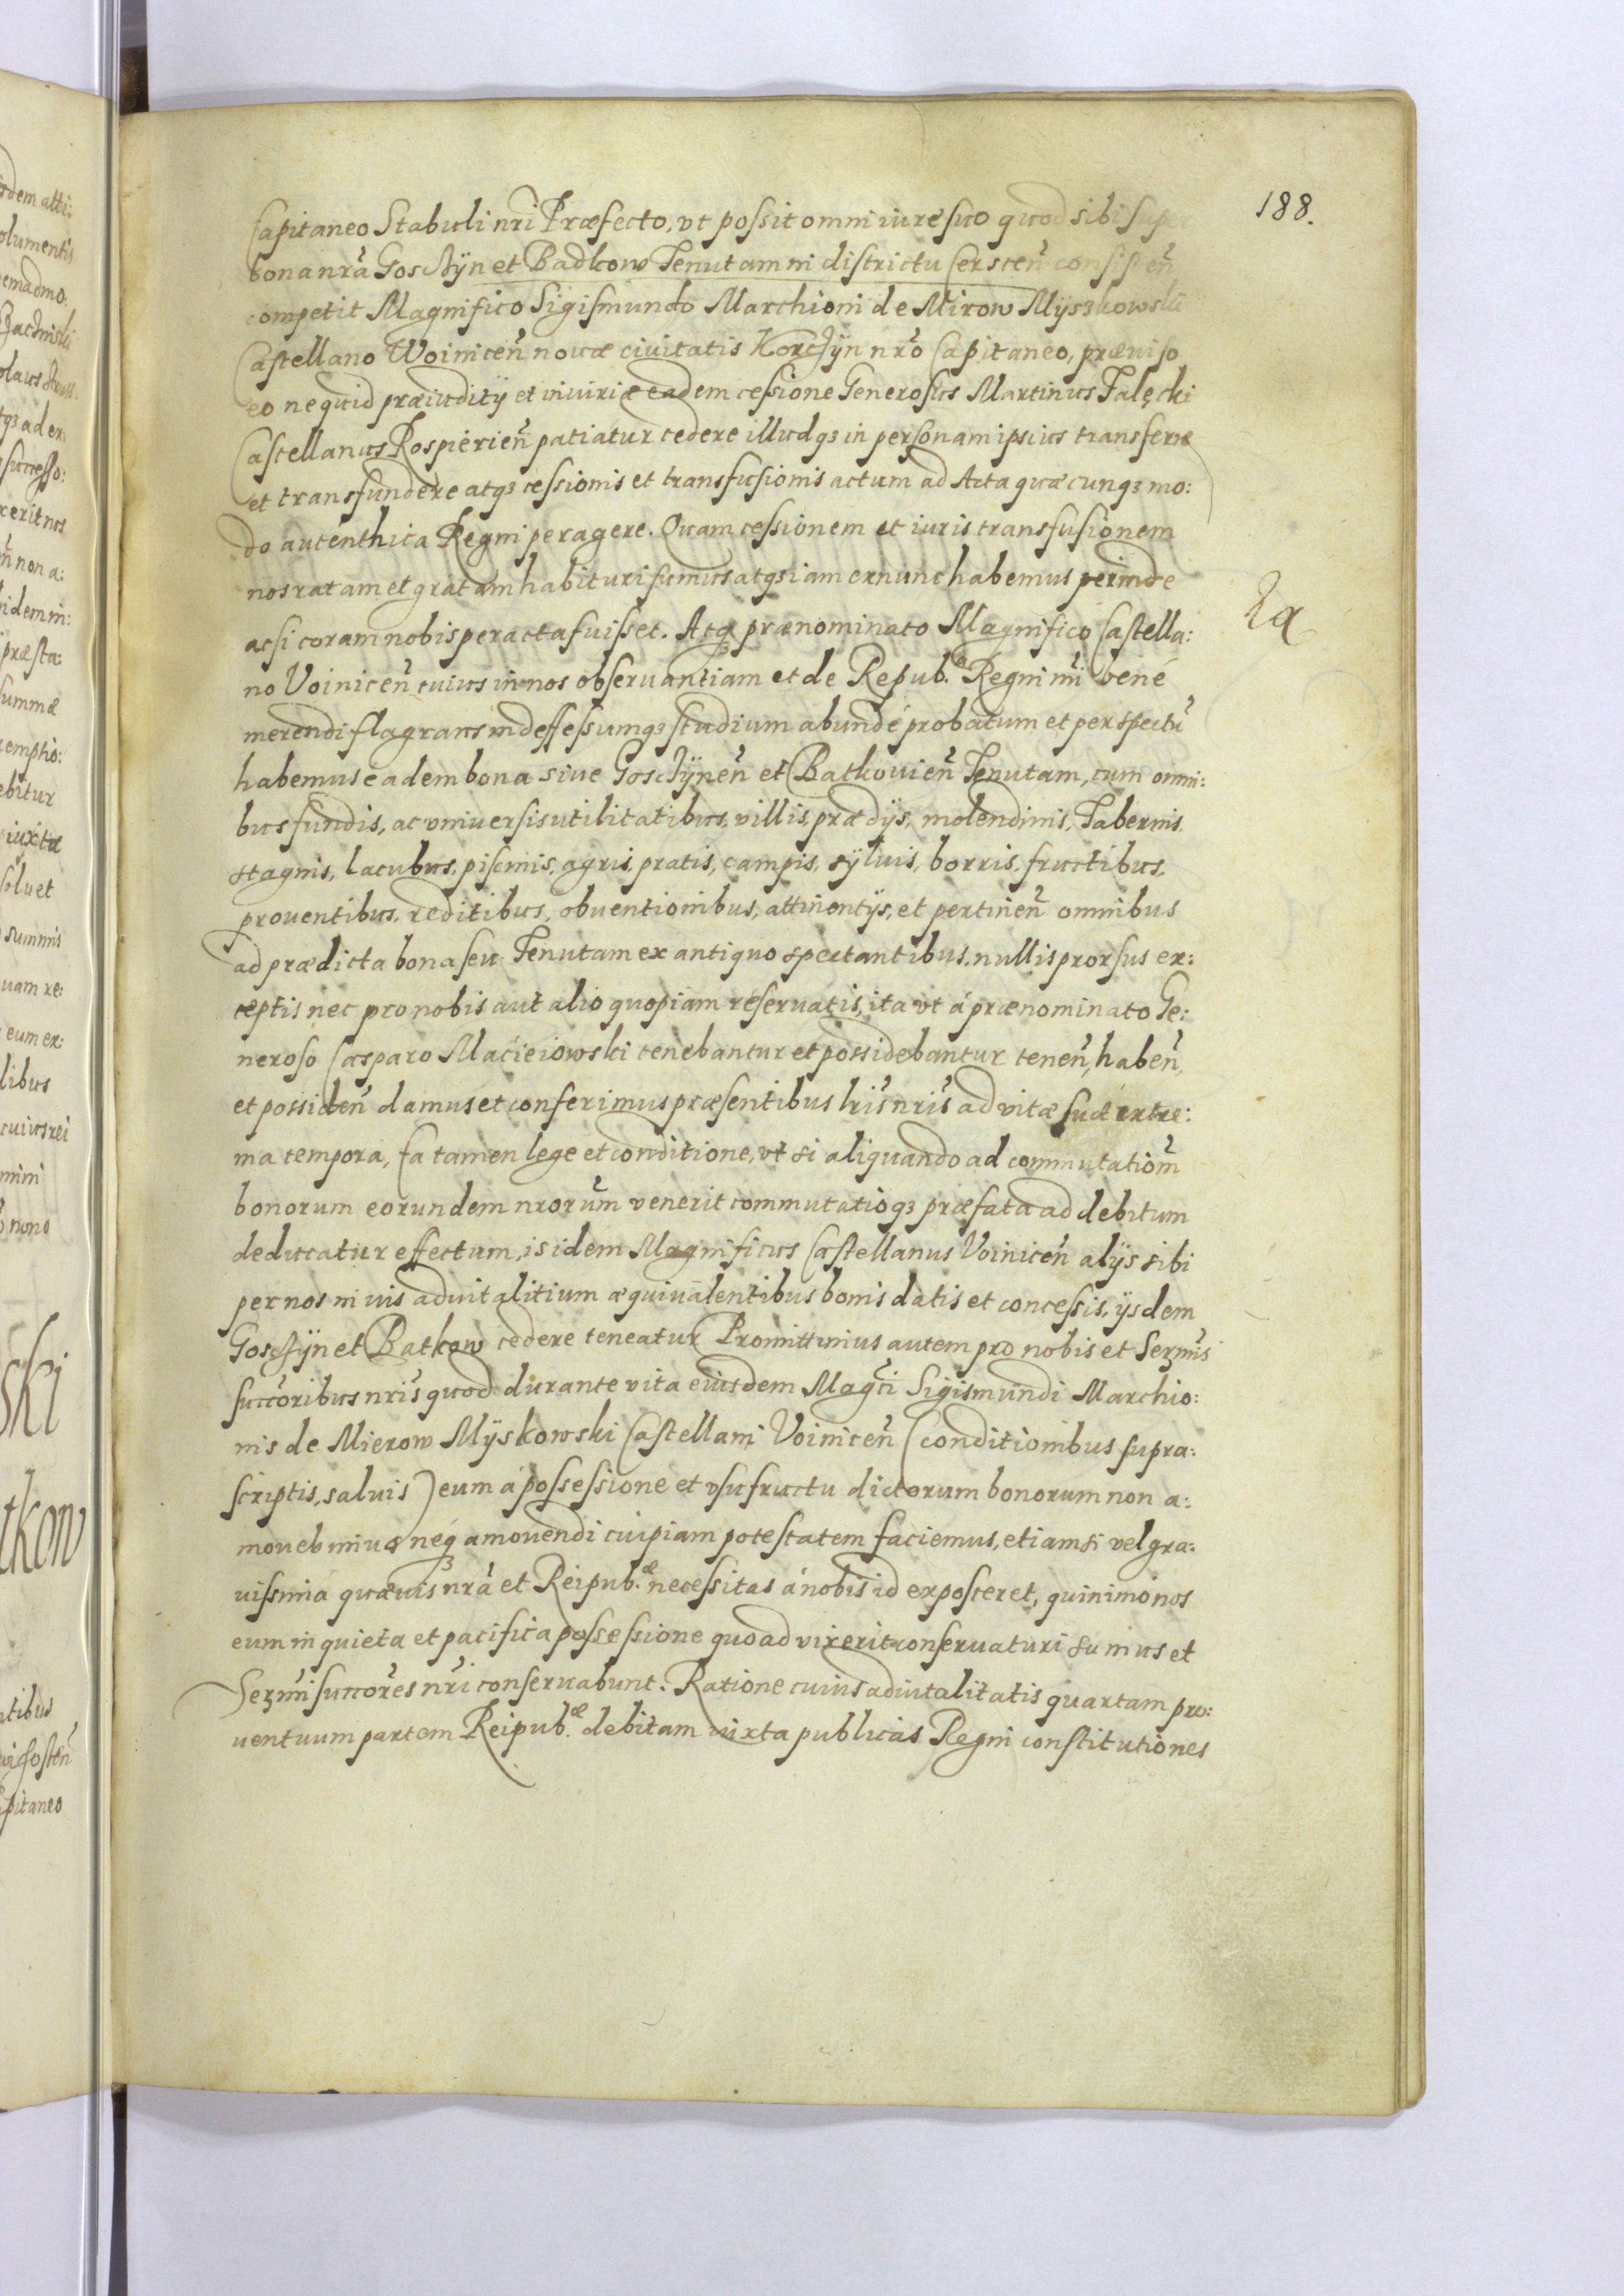 188.
Capitaneo Stabuli nri Præfecto, vt possit omni iure suo quod sibi super
bona nrã Goscżÿn et Badkow Tenutam in districtu Cerscen̄ consisten̄
competit Magnifico Sigismundo Marchioni de Mirow Mÿszkowski
Castellano Woinicen̄ nouæ ciuitatis Korcżÿn nr̃o Capitaneo, præuiso
eo ne quid præiuditÿ et iniuriæ eadem cessione Generosus Martinus Falęcki
Castellanus Rospirien̄ patiatur cedere illudqз in personam ipsius transferre
et transfundere atqз cessionis et transfusionis actum ad Acta quæcunqз mo:
do autenthica Regni peragere. Quam cessionem et iuris transfusionem
nos ratam et gratam habituri sumus atqз iam ex nunc habemus perinde
ac si coram nobis peracta fuisset. Atqз prænominato Magnifico Castella:
no Voinicen̄ cuius in nos obseruantiam et de Repub.ª Regni nr̃i benè
merendi flagrans indeffessumqз studium abundè probatum et perspectū
habemus eadem bona siue Goscżÿnen̄ et Batkouien̄ Tenutam, cum omni:
bus fundis, ac vniuersis utilitatibus, villis, prædÿs, molendinis, Tabernis,
stagnis, lacubus, piscinis, agris, pratis, campis, sÿluis, borris, fructibus,
prouentibus, reditibus, obuentionibus, attinentÿs, et pertinen̄ omnibus
ad prædicta bona seu Tenutam ex antiquo spectantibus, nullis prorsus ex:
ceptis nec pro nobis aut alio quopiam reseruatis, ita vt á prænominato Ge:
neroso Casparo Macieiowski tenebantur et possidebantur tenen̄, haben̄,
et possiden̄ damus et conferimus præsentibus lr̃is nr̃is ad vitæ suæ extre:
ma tempora, Ea tamen lege et conditione, vt si aliquando ad commutatiom̄
bonorum eorundem nrorum̄ venerit commutatioqз præfata ad debitum
deducatur effectum, is idem Magnificus Castellanus Voinicen̄ alÿs sibi
per nos in uis aduitalitium æquiualentibus bonis datis et concessis, ÿsdem
Goscżÿn et Batkow cedere teneatur Promittimus autem pro nobis et Serm̄is
succoribus nr̃is quod durante vita eiusdem Magc̄i Sigismundi Marchio:
nis de Mierow Mÿskowski Castellani Voinicen̄ (conditionibus supra:
scriptis, saluis) eum á possessione et vsufructu dictorum bonorum non a:
mouebimus neqз amouendi cuipiam potestatem faciemus, etiamsi vel gra:
uissima quæuis nr̃a et Reipub.æ necessitas á nobis id exposceret, quinimo nos
eum in quieta et pacifica possessione quoad vixerit conseruaturi sumus et
Serm̄i succores nr̃i conseruabunt. Ratione cuius aduitalitatis quartam pro:
uentuum partem Reipub.æ debitam iuxta publicas Regni constitutiones